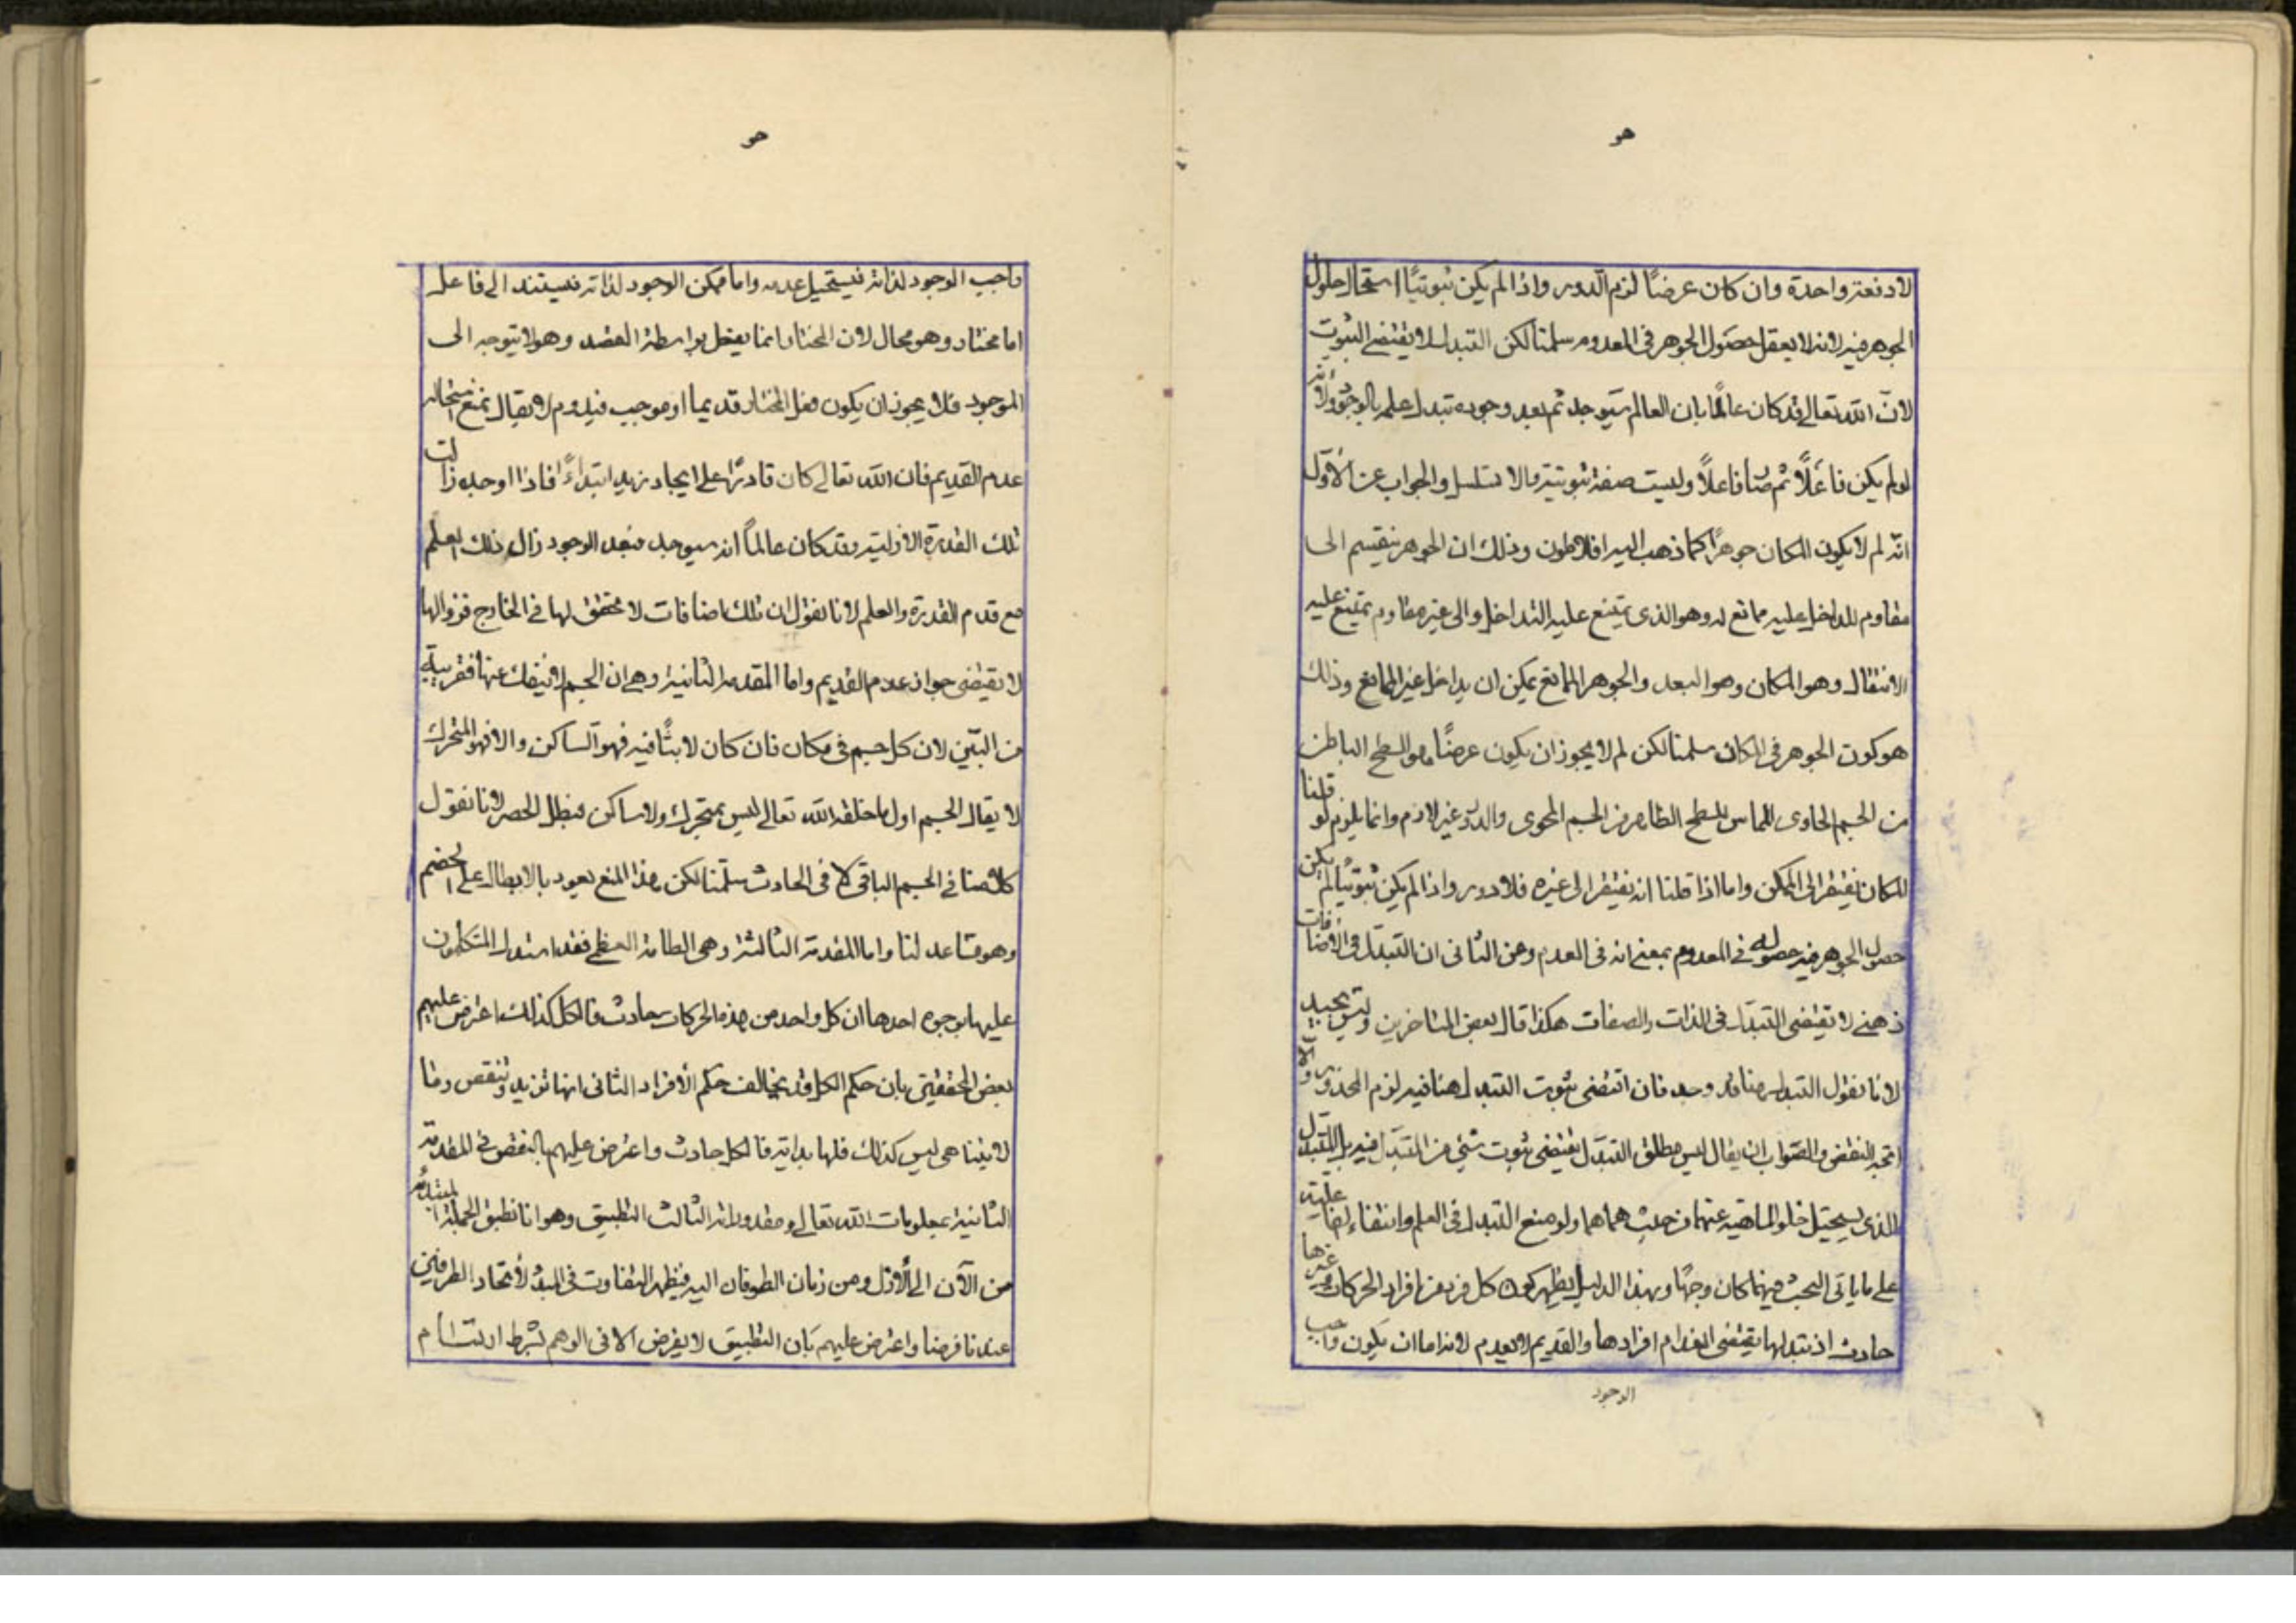 هو
لا دفعة واحدة وان كان عرضًا لزم الدور واذا لم يكن ثبوتيًا استحال حلول
الجوهر فيه لانه لا يعقل حصول الجوهر فى المعدوم سلمنا لكن التبدل لا يقتضى الثبوت
لانّ الله تعالى قد كان عالمًا بان العالم سيوجد ثم بعد وجوده تبدل علمه بالوجود ولانه
لو لم يكن فاعلًا ثم صار فاعلًا وليست صفة ثبوتية والا تسلسل والجواب عن الأول
انّه لم لا يكون المكان جوهرًا كما ذهب اليه افلاطون وذلك ان الجوهر ينقسم الى
مقاوم للداخل عليه ممانع له وهو الذى يمتنع عليه التداخل والى غير مقاوم يمتنع عليه
الانتقال وهو المكان وهو البعد والجوهر الممانع يمكن ان يداخل غير الممانع وذلك
هو كون الجوهر فى المكان سلمنا لكن لم لا يجوز ان يكون عرضًا هو السطح الباطن
من الجسم الحاوى المماس للسطح الظاهر من الجسم المحوى والدور غير لازم وانما يلزم لو قلنا
المكان يفتقر الى المتمكن واما اذا قلنا انه يفتقر الى غيره فلا دور واذا لم يكن ثبوتيًا لم يكن
حصول الجوهر فيه حصوله فى المعدوم بمعنى انه فى العدم وعن الثانى ان التبدّل فى الأضافات
ذهنى لا تقتضى التبدل فى الذات والصفات هكذا قال بعض المتاخرين وليس بجيد
لانا نقول التبدل هنا قد وجد فان اقتضى ثبوت التبدل هنا فيه لزم المحذور والا
اتجه النقض والصّواب ان يقال ليس مطلق التبدل يقتضى ثبوت شئ من المتبدل فيه بل المتبدل
الذى يستحيل خلو الماهية عنهما من حيث هما هما ولو منع التبدل فى العلم وانتفاء الفاعلية
على ما ياتى البحث فيهما كان وجهًا وبهذا الدليل يظهر كون كل فرد من افراد الحركات وغيرها
حادث اذ تبدلها يقتضى انعدام افرادها والقديم لا يعدم لانه اما ان يكون واجب
الوجود
هو
واجب الوجود لذاته فيستحيل عدمه واما ممكن الوجود لذاته فيستند الى فاعل
اما مختار وهو محال لان المختار انما يفعل بواسطة القصد وهو لا يتوجه الى
الموجود فلا يجوز ان يكون فعل المختار قديما او موجب فيدوم لا يقال نمنع استحالة
عدم القديم فان الله تعالى كان قادرًا على ايجاد زيد ابتداءً فاذا اوجده زالت
تلك القدرة الازلية وقد كان عالماً انه سيوجد فبعد الوجود زال ذلك العلم
مع قدم القدرة والعلم لانا نقول ان تلك اضافات لا تحقق لها فى الخارج فزوالها
لا يقتضى جواز عدم القديم واما المقدمة الثانية وهى ان الجسم لا ينفك عنها فقريبة
من البيّن لان كل جسم فى مكان فان كان لابثًا فيه فهو الساكن والا فهو المتحرك
لا يقال الجسم اول ما خلقه الله تعالى ليس بمتحرك ولا ساكن فبطل الحصر لانا نقول
كلامنا فى الجسم الباقى لا فى الحادث سلّمنا لكن هذا المنع يعود بالابطال على الخصم
وهو مساعد لنا واما المقدمة الثالثة وهى الطامة العظمى فقد استدل المتكلمون
عليها بوجوه احدها ان كل واحد من هذه الحركات حادث فالكل كذلك اعترض عليهم
بعض المحققين بان حكم الكل قد يخالف حكم الأفراد الثانى انها تزيد وتنقص وما
لا يتناهى ليس كذلك فلها بداية فالكل حادث واعترض عليهم بالنقض فى المقدمة
الثانية بمعلومات الله تعالى ومقدوراته الثالث التطبيق وهو انا نطبق الجملة المبتدأة
من الآن الى الأزل ومن زمان الطوفان اليه فيظهر التفاوت فى المبدأ لأتحاد الطرفين
عندنا فرضا واعترض عليهم بان التطبيق لا يفرض الا فى الوهم بشرط ارتسام